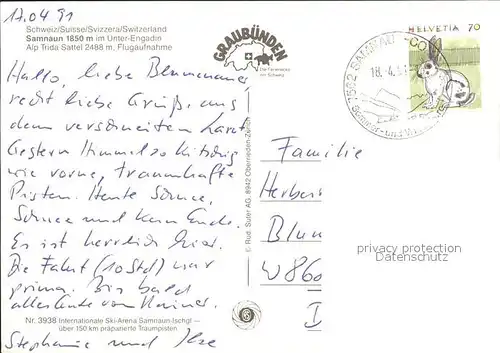 17.04.91
Schweiz/Suisse/Svizzera/Switzerland
Samnaun 1850 m im Unter-Engadin
Alp Trida Sattel 2488 m, Flugaufnahme
GRAUBÜNDEN
Die Ferienecke
der Schweiz
HELVETIA 70
7562 SAMNAUN-CO
18.-4.91
Sommer- und
Hallo, liebe Blumenauer,
recht liebe Grüße aus
dem verschneiten
Gestern Himmel so kitschig
wie vorne, traumhafte
Pisten. Heute Schnee,
Schnee und kein Ende.
Es ist herrlich hier.
Die Fahrt (10 Std) war
prima. Bis bald
alles Gute von
Stephanie und
Familie
Herber
Blum
W 860
© Rud. Suter AG, 8942 Oberrieden-Zürich
privacy protection
Datenschutz
Nr. 3938 Internationale Ski-Arena Samnaun-Ischgl —
über 150 km präparierte Traumpisten